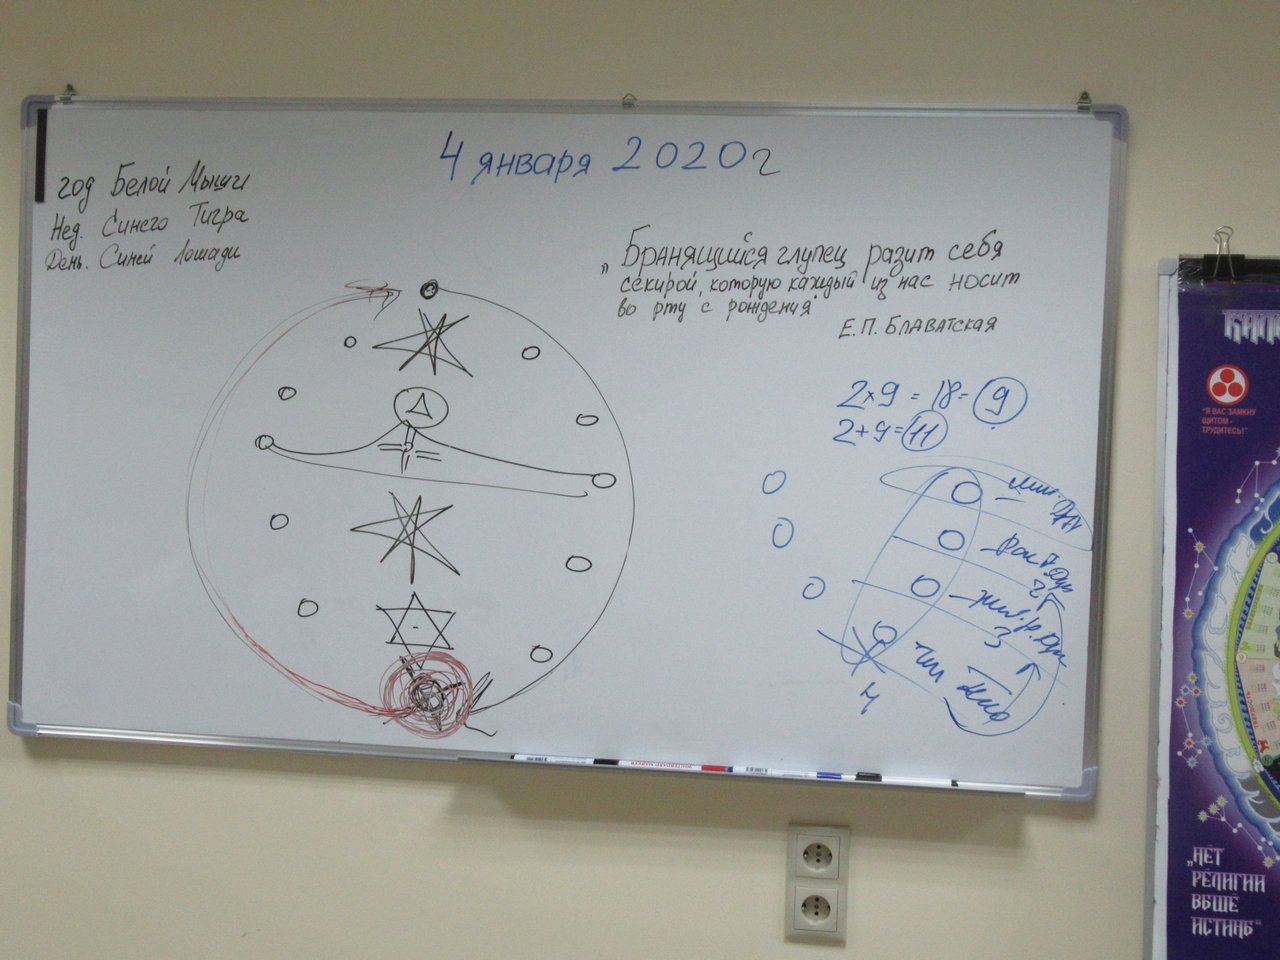 4 января 2020г
год Белой Мыши
Нед. Синего Тигра
День. Синей Лошади
„Бранящийся глупец разит себя
секирой, которую каждый из нас носит
во рту с рождения"
Е.П. Блаватская
2×9 = 18 = 9
2+9 = 11
2
3
4
"Я ВАС ЗАМКНУ
ЩИТОМ -
ТРУДИТЕСЬ!"
„НЕТ
РЕЛИГИИ
ВЫШЕ
ИСТИНЫ"